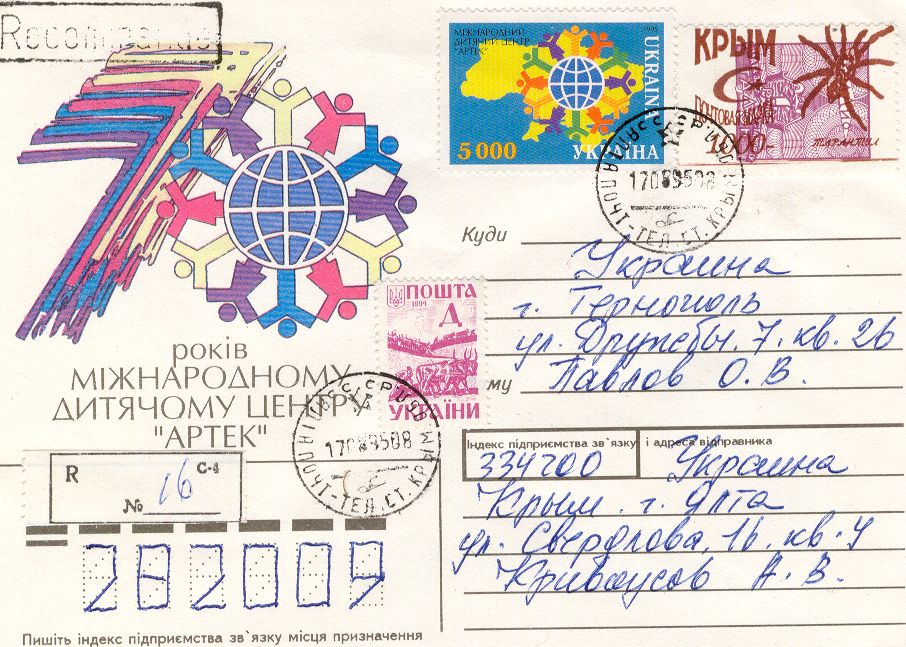 Recommandé
70
МІЖНАРОДНИЙ
ДИТЯЧИЙ ЦЕНТР
"АРТЕК"
1995
UKRAINA
5 000
УКРАЇНА
КРЫМ
ПОЧТОВАЯ
1000-
ТАРАНТУЛ
СССР
ПОЧТ-ТЕЛ.СТ.КРЫМ
17089508
Куди
Украина
г. Тернополь
ул. Дружбы, 7. кв. 26
Павлов О. В.
му
ПОШТА
1994
Д
УКРАЇНИ
років
МІЖНАРОДНОМУ
ДИТЯЧОМУ ЦЕНТРУ
"АРТЕК"
СССР
ПОЧТ-ТЕЛ.СТ.КРЫМ
17089508
R
С-4
№ 16
Індекс підприємства зв`язку і адреса відправника
334200 Украина
Крым. г. Ялта
ул. Свердлова, 16. кв. 4
А. В.
282009
Пишіть індекс підприємства зв`язку місця призначення